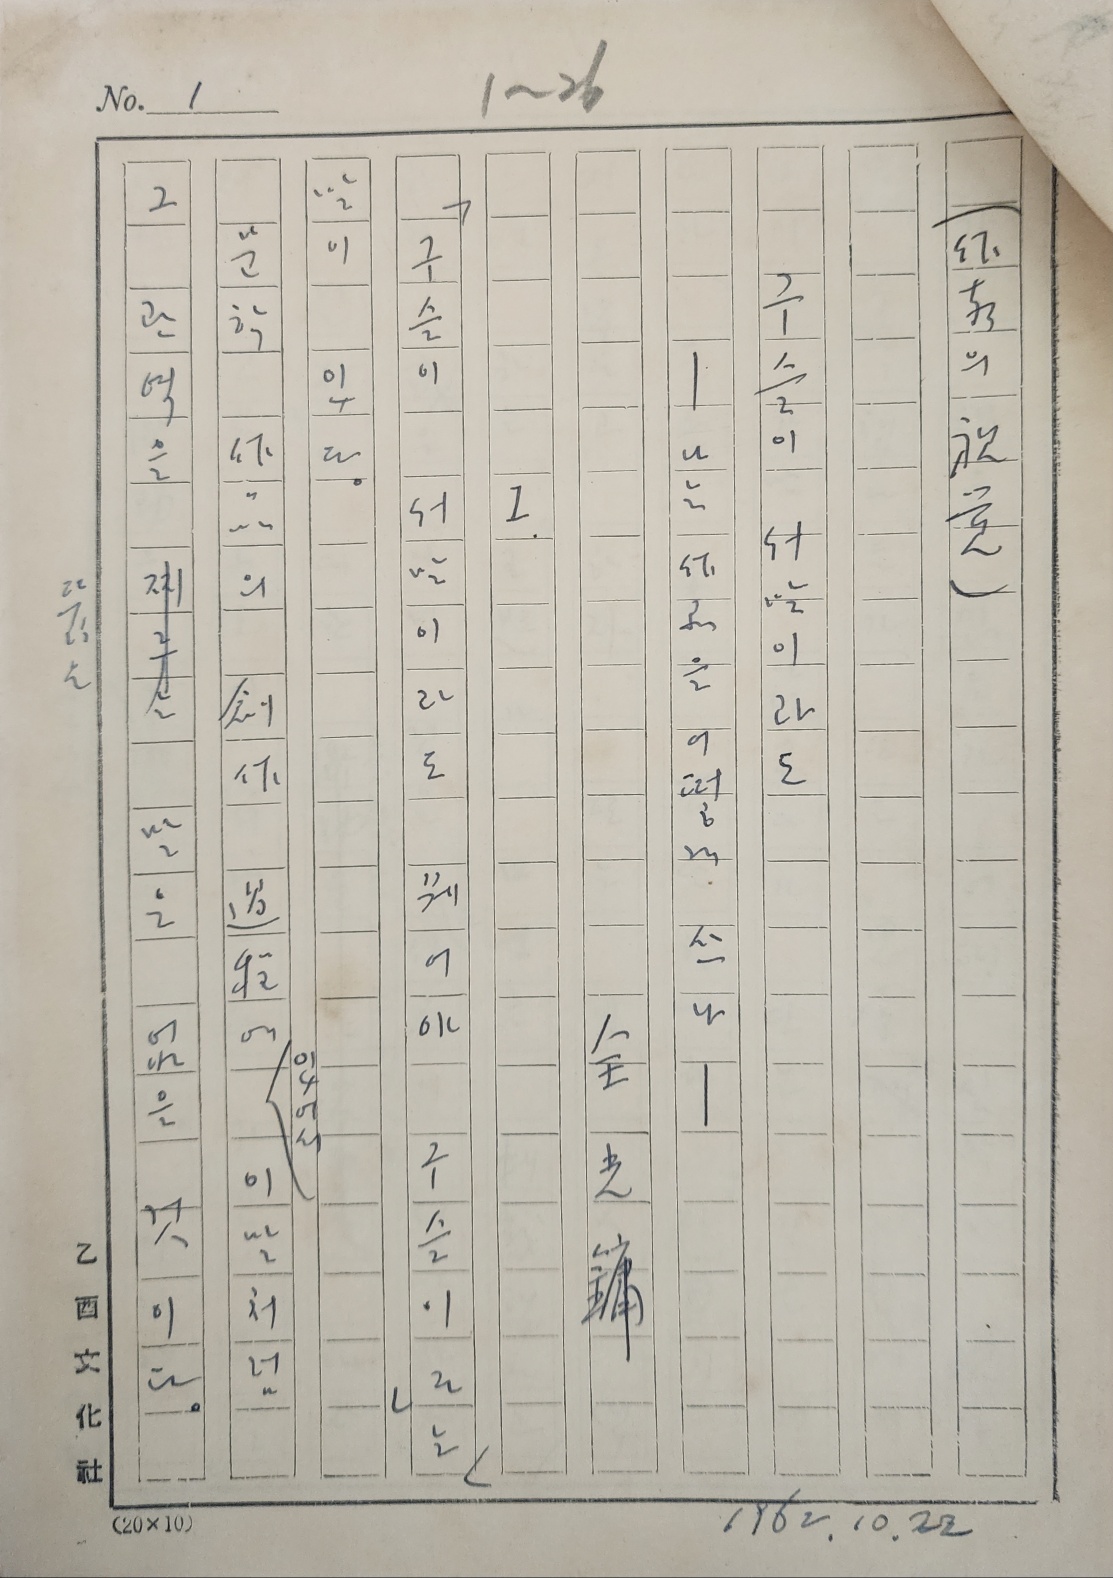 No. 1
1~26
(作家의
구슬이 서말이라도
— 나는 作品을 어떻게 쓰나 —
金光鏞
I.
「구슬이 서말이라도 꿰어야 구슬이라는」
말이 있다.
문학 作品의 創作 過程에 있어서 이말처럼
그 관역을 찌르는 말은 없을 것이다.
뚫는
乙酉文化社
(20×10)
1962.10.22